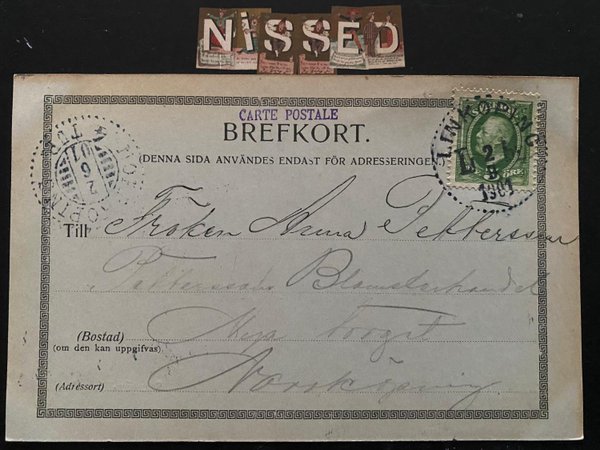 NISSED
CARTE POSTALE
BREFKORT.
(DENNA SIDA ANVÄNDES ENDAST FÖR ADRESSERINGEN.)
LINKÖPING
1901
NORRKÖPING
Till Fröken Anna Pettersson
Petterssons Blomsterhandel
(Bostad)
(om den kan uppgifvas)
Nya Torget
(Adressort)
Norrköping